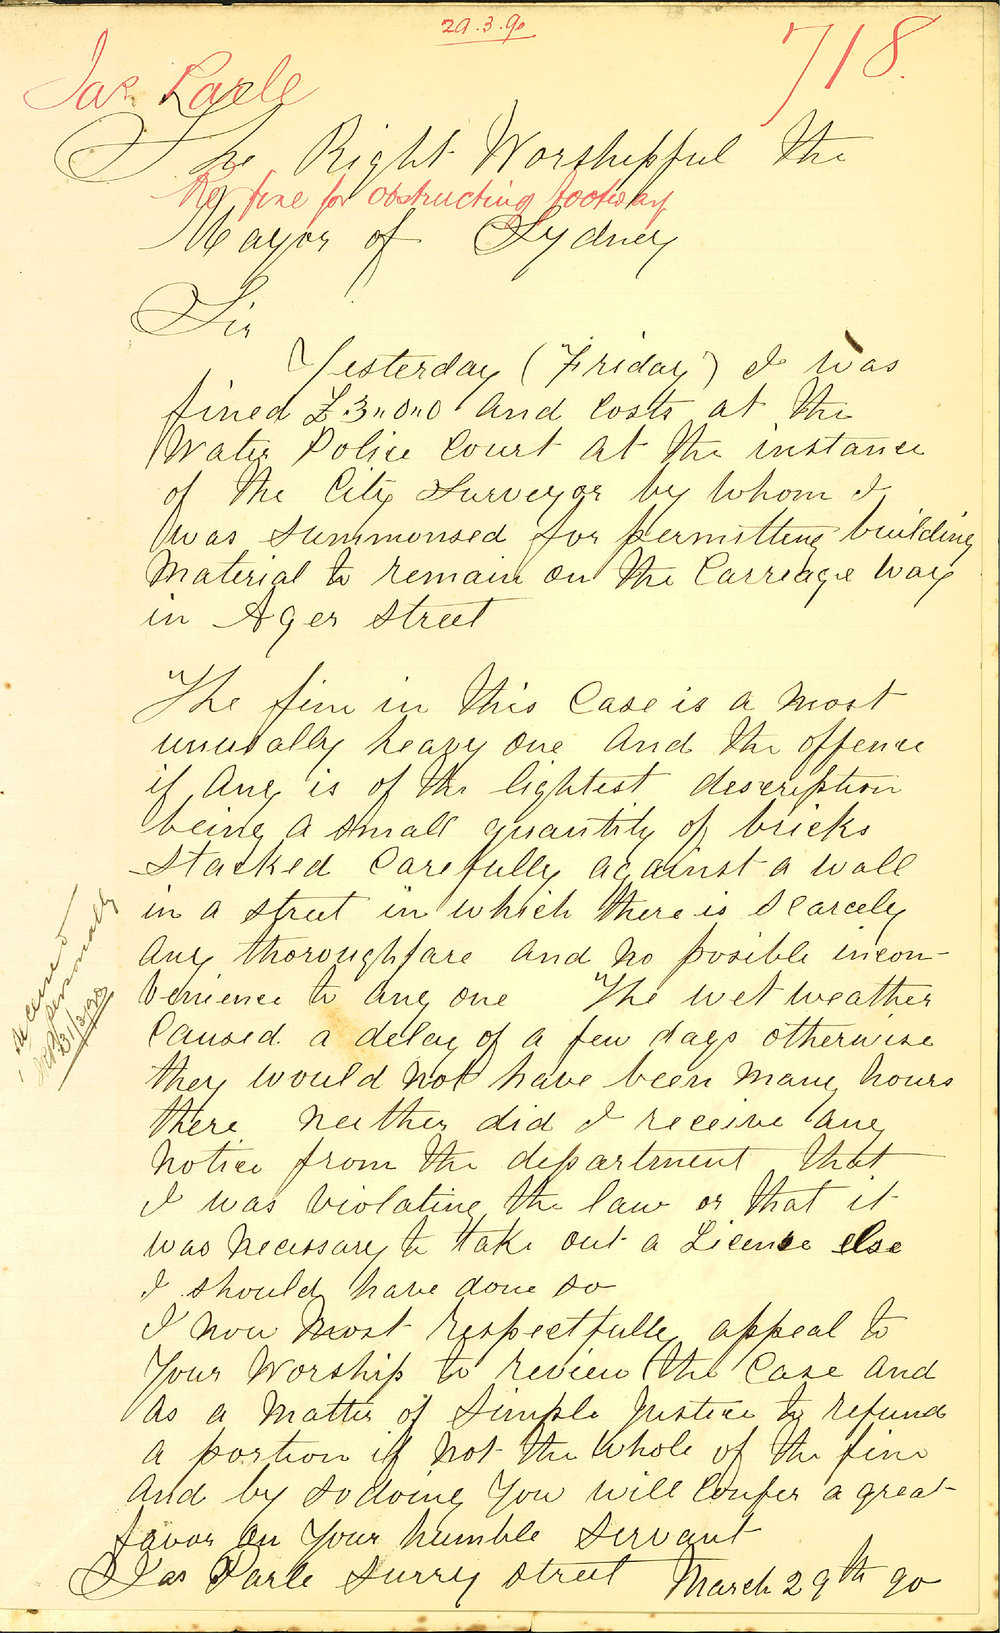 29.3.90
718.
Jas. Parle
The Right Worshipful the
Re fine for obstructing footway
Mayor of Sydney
Sir
Yesterday (Friday) I was
fined £.3"0"0 and costs at the
Water Police Court at the instance
of the City Surveyor by whom I
was summonsed for permitting building
material to remain on the Carreage way
in Ager street
The fine in this Case is a most
unusally heavy one and the offence
if any is of the lightest description
being a small quantity of bricks
stacked Carefully against a wall
in a street in which there is scarcely
any thoroughfare and no posible incon-
venience to any one The wet weather
Caused a delay of a few days otherwise
they would not have been many hours
there neither did I receive any
notice from the department that
I was violating the law or that it
was necessary to take out a License else
I should have done so
I now most respectfully appeal to
Your Worship to review the Case and
as a matter of simple Justice to refund
a portion if not the whole of the fine
and by so doing You will Confer a great
favor on Your humble servant
Jas Parle Surry street March 29th 90
personally
31/3/90